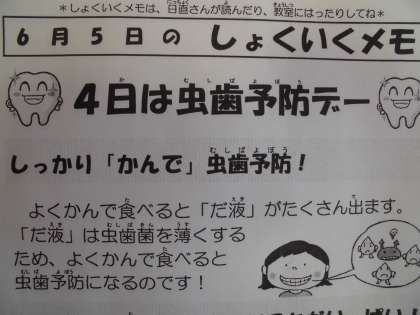 ＊しょくいくメモは、日直さんが読んだり、教室にはったりしてね＊
6月5日の しょくいくメモ
4日は虫歯予防デー
しっかり「かんで」虫歯予防！
よくかんで食べると「だ液」がたくさん出ます。
「だ液」は虫歯菌を薄くする
ため、よくかんで食べると
虫歯予防になるのです！